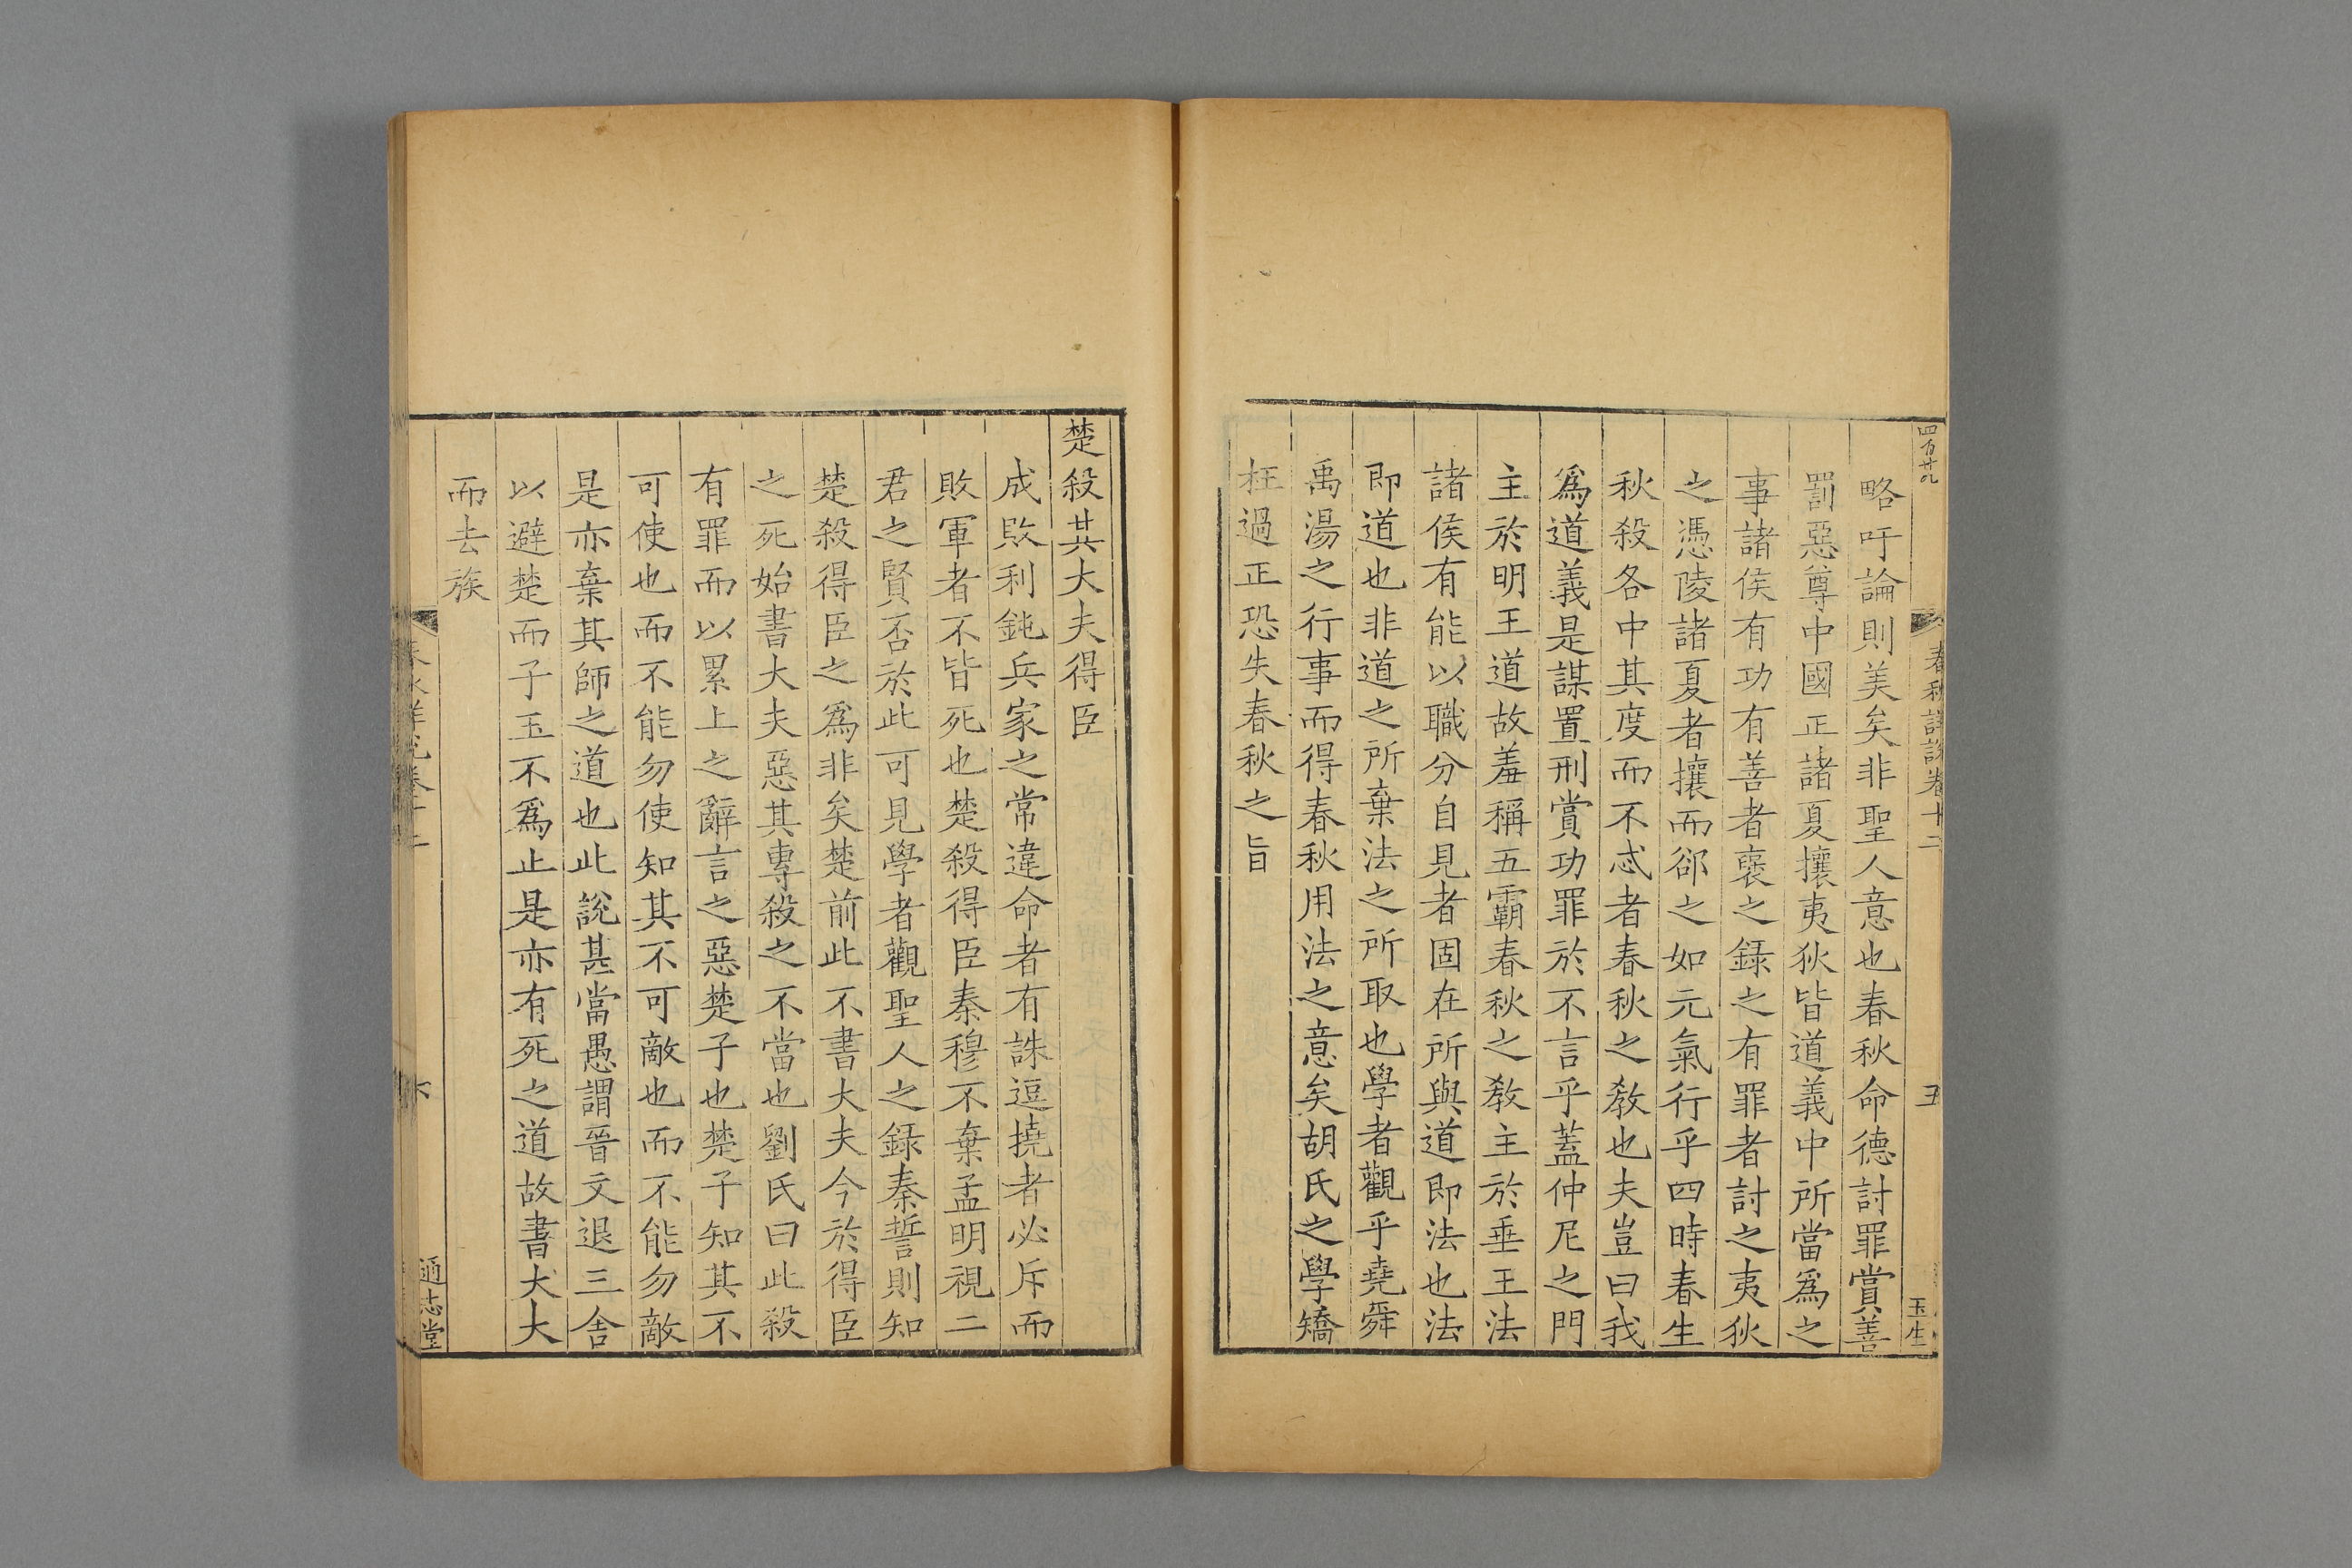 四百廿九
春秋詳說卷十二
五
玉生
略吁論則美矣非聖人意也春秋命德討罪賞善
罰惡尊中國正諸夏攘夷狄皆道義中所當爲之
事諸侯有功有善者襃之録之有罪者討之夷狄
之憑陵諸夏者攘而郤之如元氣行乎四時春生
秋殺各中其度而不忒者春秋之教也夫豈曰我
爲道義是謀置刑賞功罪於不言乎蓋仲尼之門
主於明王道故羞稱五霸春秋之教主於垂王法
諸侯有能以職分自見者固在所與道即法也法
即道也非道之所棄法之所取也學者觀乎堯舜
禹湯之行事而得春秋用法之意矣胡氏之學矯
枉過正恐失春秋之旨
楚殺其大夫得臣
成敗利鈍兵家之常違命者有誅逗撓者必斥而
敗軍者不皆死也楚殺得臣秦穆不棄孟明視二
君之賢否於此可見學者觀聖人之録秦誓則知
楚殺得臣之爲非矣楚前此不書大夫今於得臣
之死始書大夫惡其專殺之不當也劉氏曰此殺
有罪而以累上之辭言之惡楚子也楚子知其不
可使也而不能勿使知其不可敵也而不能勿敵
是亦棄其師之道也此說甚當愚謂晉文退三舍
以避楚而子玉不爲止是亦有死之道故書大夫
而去族
六
通志堂